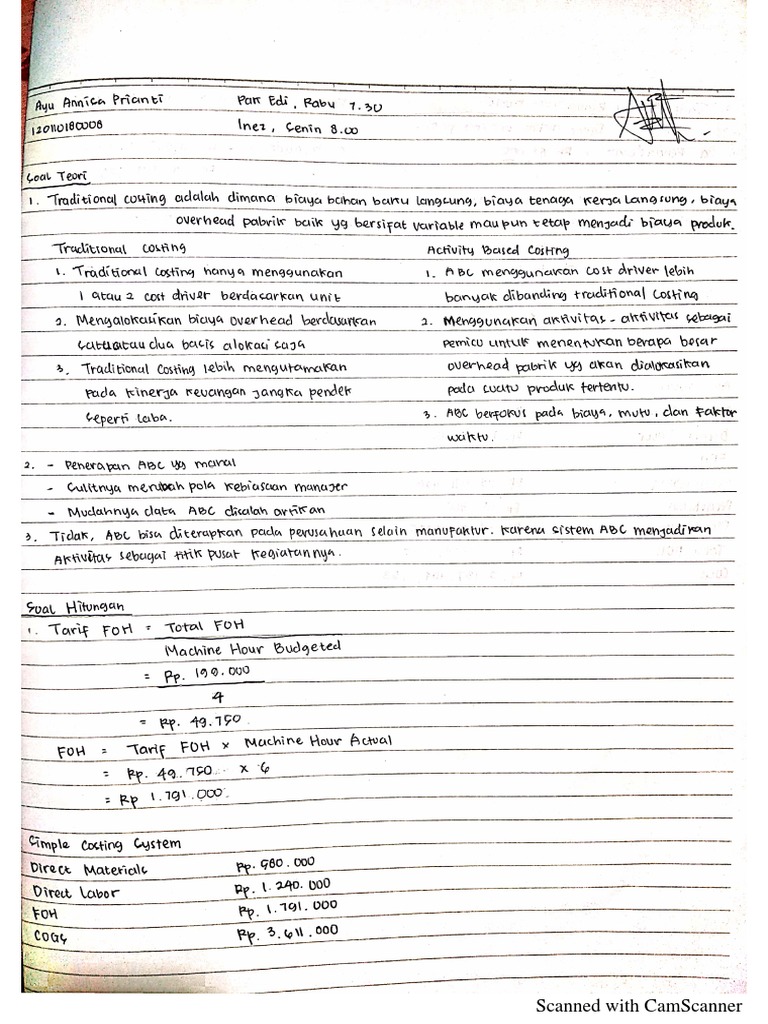 Ayu Annisa Prianti Pak Edi, Rabu 7.30
120110180008 Inez, Senin 8.00
Soal Teori
1. Traditional costing adalah dimana biaya bahan baku langsung, biaya tenaga kerja langsung, biaya
overhead pabrik baik yg bersifat variable maupun tetap menjadi biaya produk.
Traditional Costing
1. Traditional costing hanya menggunakan
1 atau 2 cost driver berdasarkan unit
2. Mengalokasikan biaya overhead berdasarkan
satu atau dua basis alokasi saja
3. Traditional Costing lebih mengutamakan
pada kinerja keuangan jangka pendek
seperti laba.
Activity Based Costing
1. ABC menggunakan cost driver lebih
banyak dibanding traditional costing
2. Menggunakan aktivitas - aktivitas sebagai
pemicu untuk menentukan berapa besar
overhead pabrik yg akan dialokasikan
pada suatu produk tertentu.
3. ABC berfokus pada biaya, mutu, dan faktor
waktu.
2. - Penerapan ABC yg mahal
- Sulitnya merubah pola kebiasaan manajer
- Mudahnya data ABC disalah artikan
3. Tidak, ABC bisa diterapkan pada perusahaan selain manufaktur. karena sistem ABC menjadikan
Aktivitas sebagai titik pusat kegiatannya.
Soal Hitungan
1. Tarif FOH = Total FOH
Machine Hour Budgeted
= Rp. 199.000
4
= Rp. 49.750
FOH = Tarif FOH x Machine Hour Actual
= Rp. 49.750 x 6
= Rp 1.791.000
Simple Costing System
Direct Materials Rp. 580.000
Direct Labor Rp. 1.240.000
FOH Rp. 1.791.000
COGS Rp. 3.611.000
Scanned with CamScanner